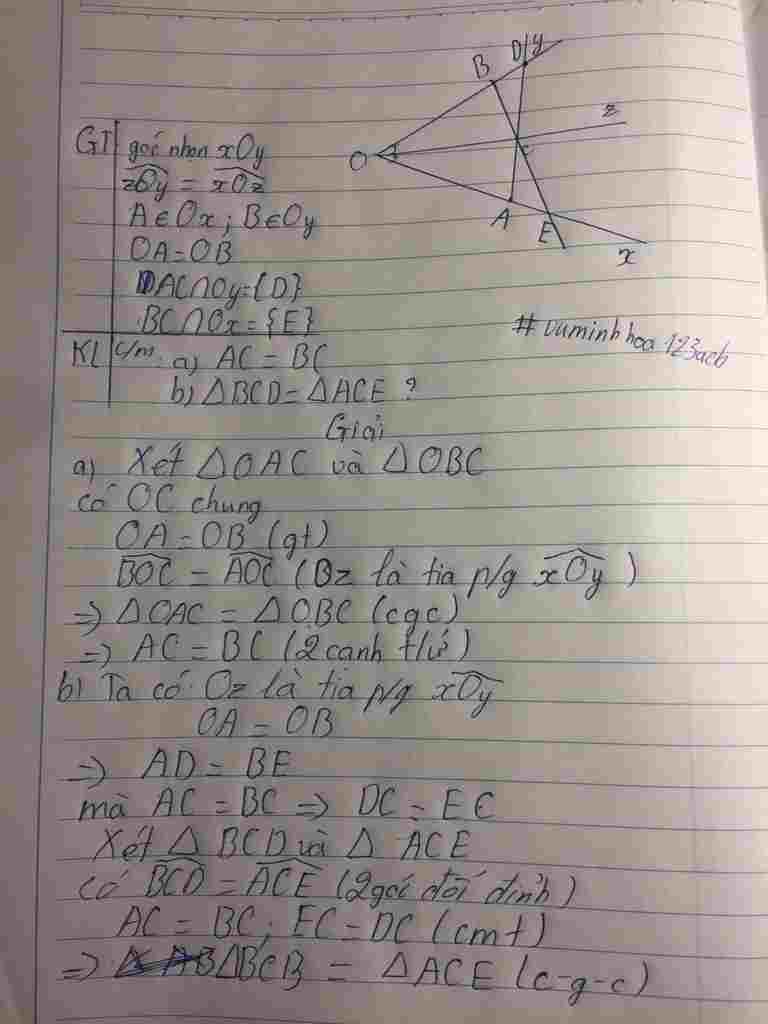 B D/y
z
O
C
A
E
x
GT góc nhọn xOy
zOy = xOz
A∈Ox ; B∈Oy
OA=OB
AC∩Oy={D}
BC∩Ox={E}
#vuminhhoa123acb
KL c/m: a) AC = BC
b) △BCD = △ACE ?
Giải
a) Xét △OAC và △OBC
có OC chung
OA = OB (gt)
BOC = AOC (Oz là tia p/g xOy)
=> △OAC = △OBC (cgc)
=> AC = BC (2 cạnh t/ứ)
b) Ta có: Oz là tia p/g xOy
OA = OB
=> AD = BE
mà AC = BC => DC = EC
Xét △ BCD và △ ACE
có BCD = ACE (2 góc đối đỉnh)
AC = BC ; EC = DC (cmt)
=> △BCB = △ACE (c-g-c)